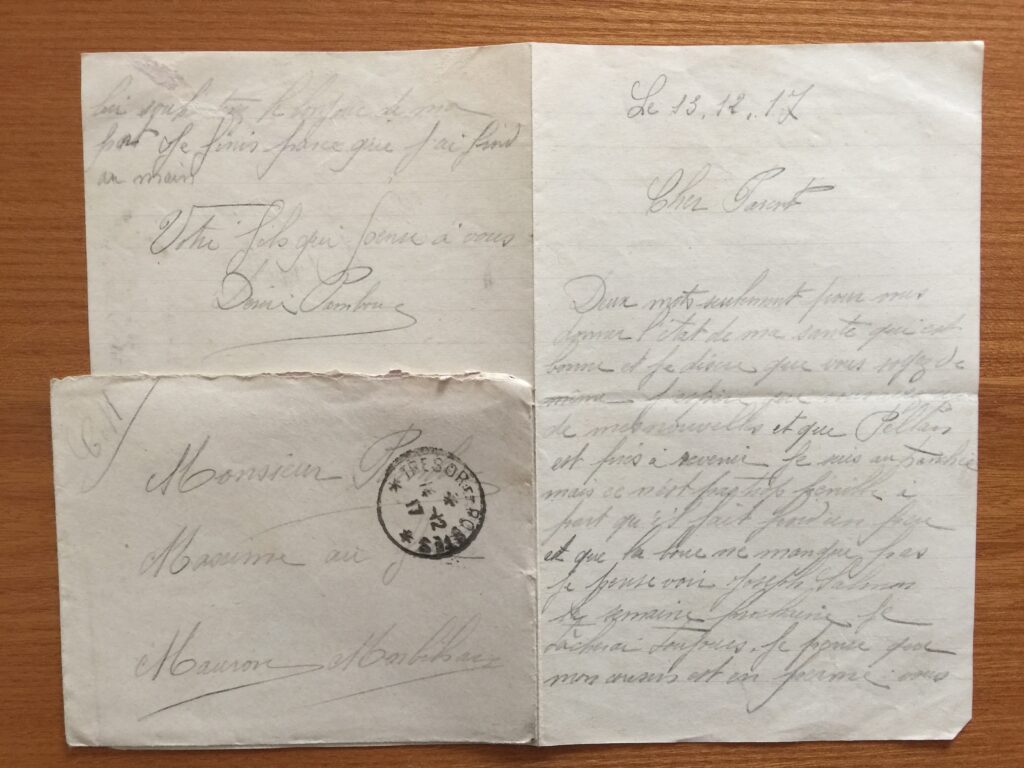 Le 13.12.17
Cher Parent
Deux mots seulement pour vous
donner l'état de ma santé qui est
bonne et je désire que vous soyez de
même
de mes nouvelles et que
est finis à revenir Je suis au tranchée
mais ce n'est pas trop penible à
part qu'il fait froid un peu
et que la boue ne manque pas
Je pense voir Joseph Salmon
la semaine prochaine Je
tâcherai toujours. Je pense que
mon cousin est en perme vous
lui de ma
part Je finis parce que j'ai froid
au main
Votre fils qui pense à vous
6.11
Monsieur
au
Mauron Morbihan
TRESOR ET POSTES
14 -12
17